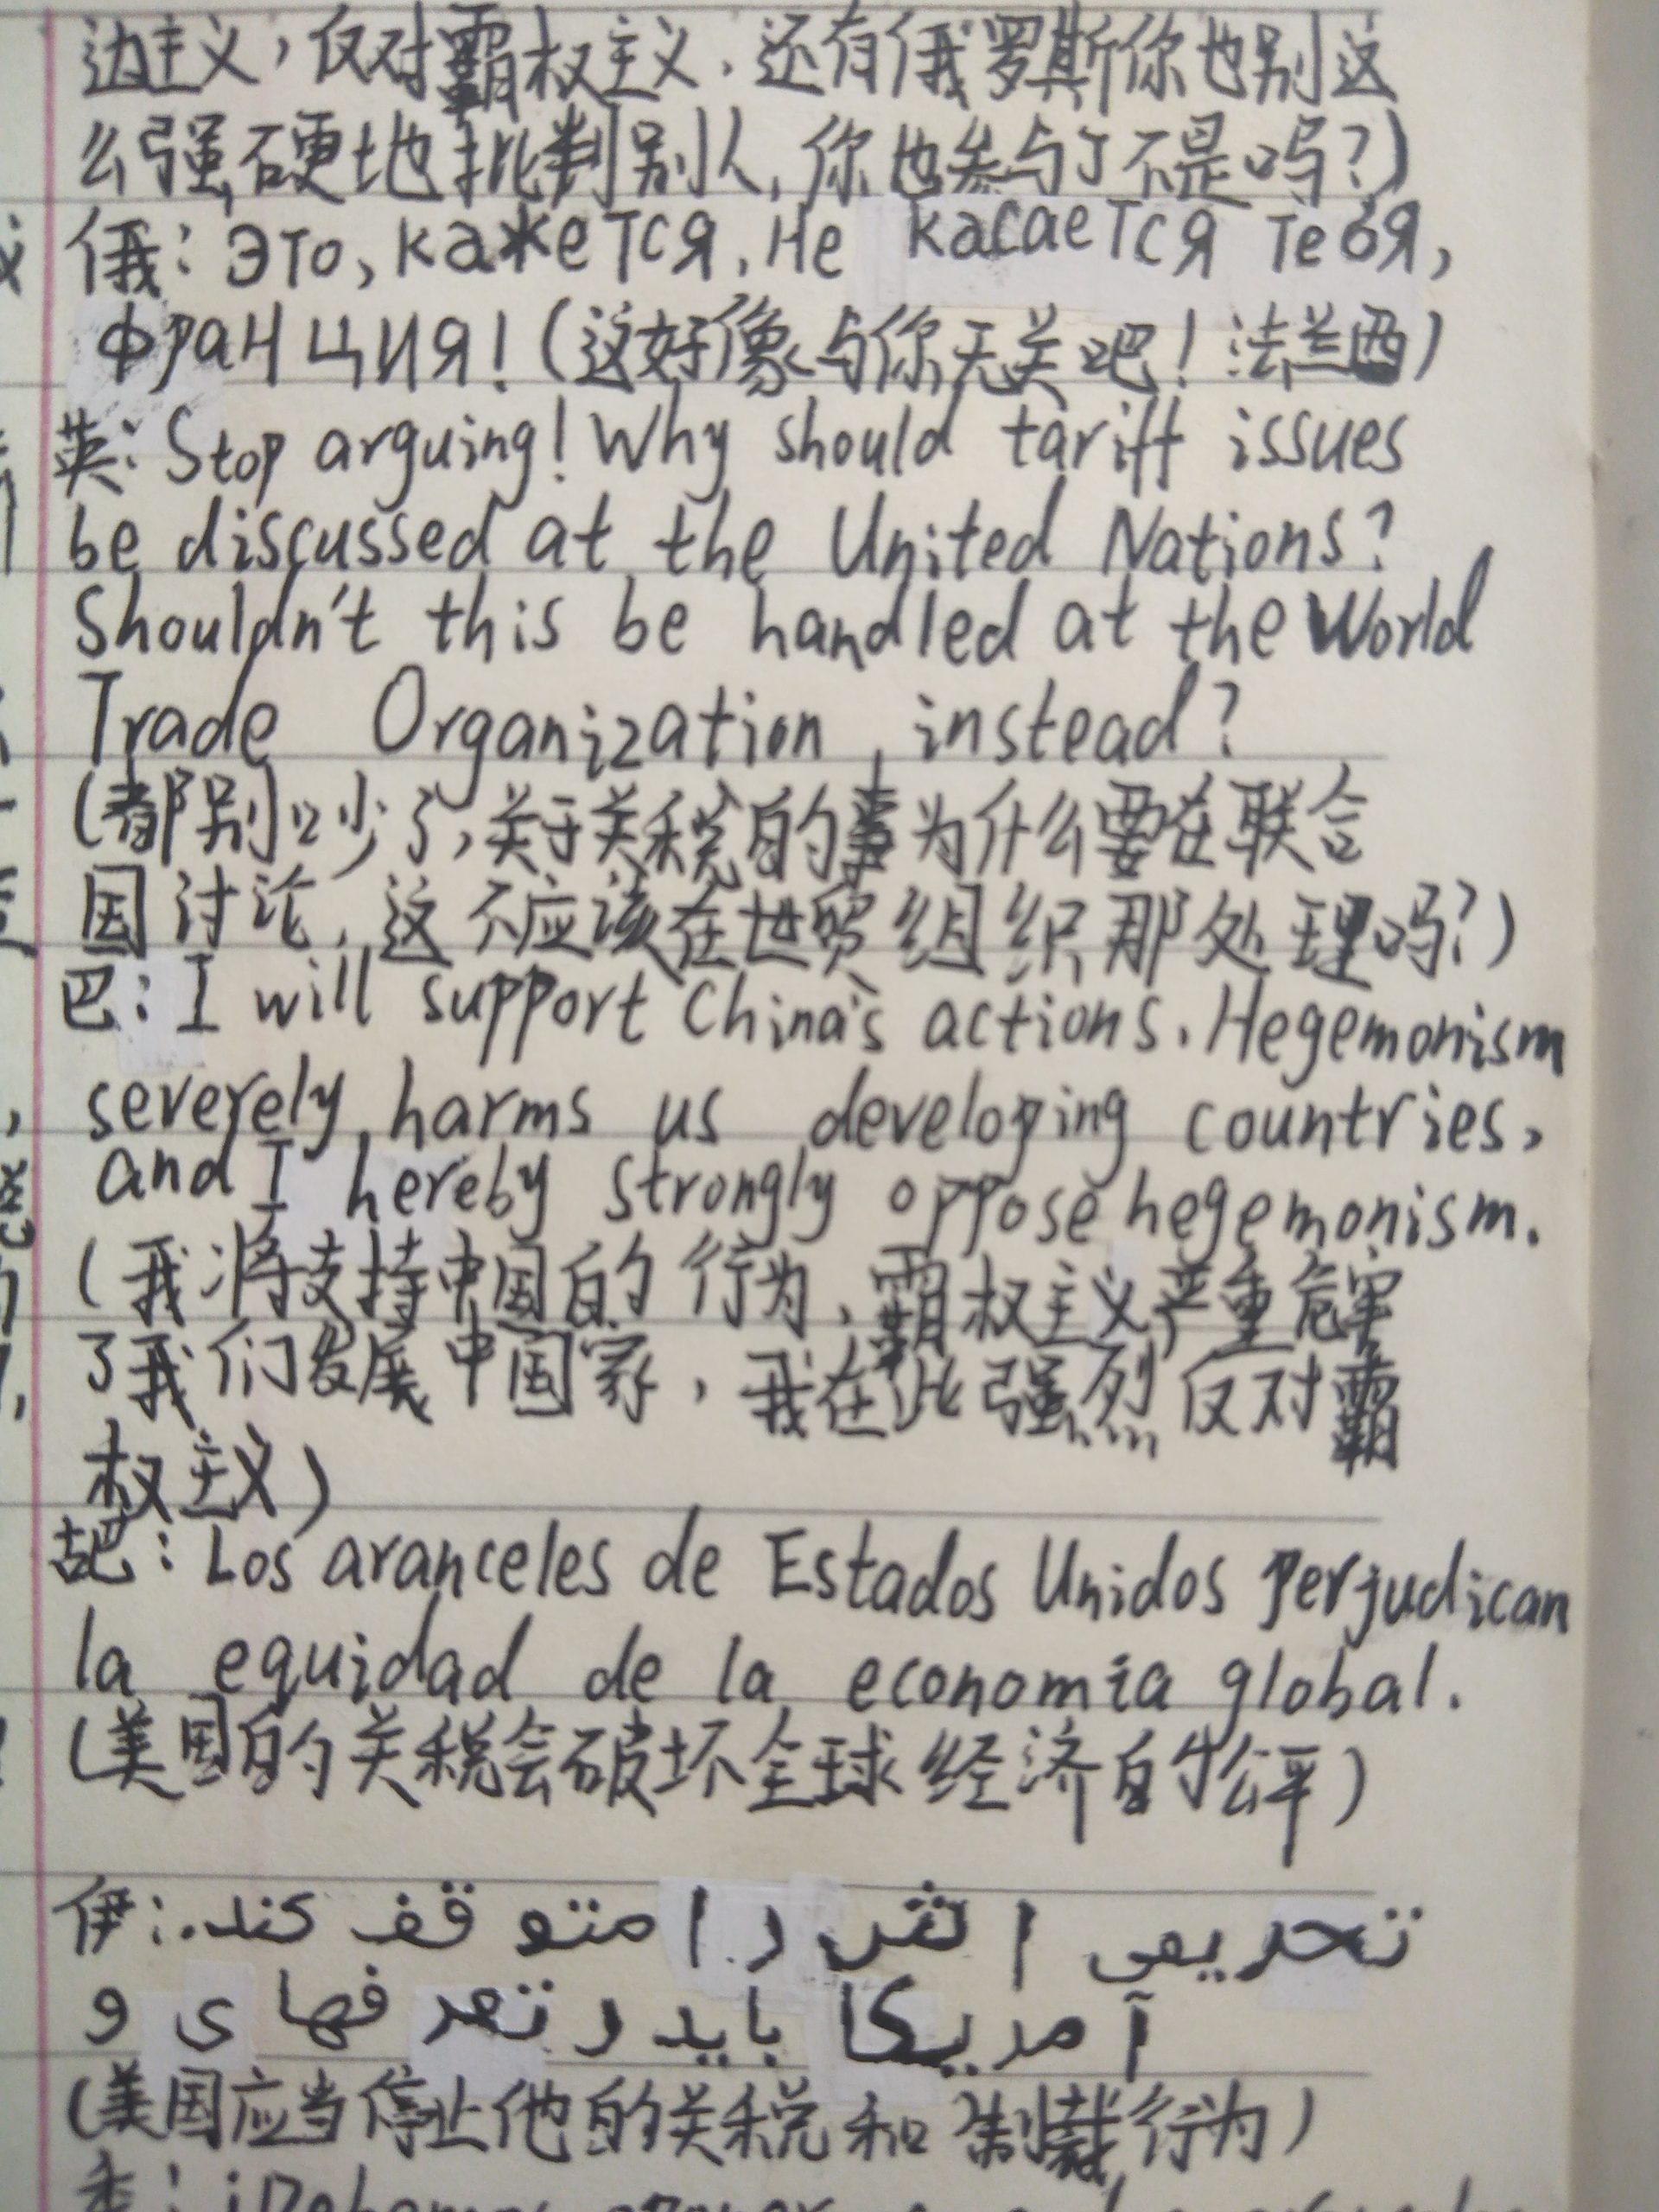 边主义，反对霸权主义，还有俄罗斯你也别这
么强硬地批判别人，你也参与了不是吗？）
俄：Это, кажется, не касается тебя,
Франция！（这好像与你无关吧！法兰西）
英：Stop arguing! Why should tariff issues
be discussed at the United Nations?
Shouldn't this be handled at the World
Trade Organization instead?
（都别吵了，关于关税的事为什么要在联合
国讨论，这不应该在世贸组织那处理吗？）
巴：I will support China's actions. Hegemonism
severely harms us developing countries,
and I hereby strongly oppose hegemonism.
（我将支持中国的行为，霸权主义严重危害
了我们发展中国家，我在此强烈反对霸
权主义）
古巴：Los aranceles de Estados Unidos perjudican
la equidad de la economía global.
（美国的关税会破坏全球经济的公平）
伊：تحریمی اش را متوقف کند.
آمریکا باید تعرفهای و
（美国应当停止他的关税和制裁行为）